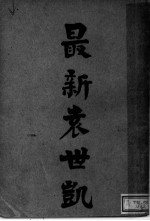 最新袁世凱